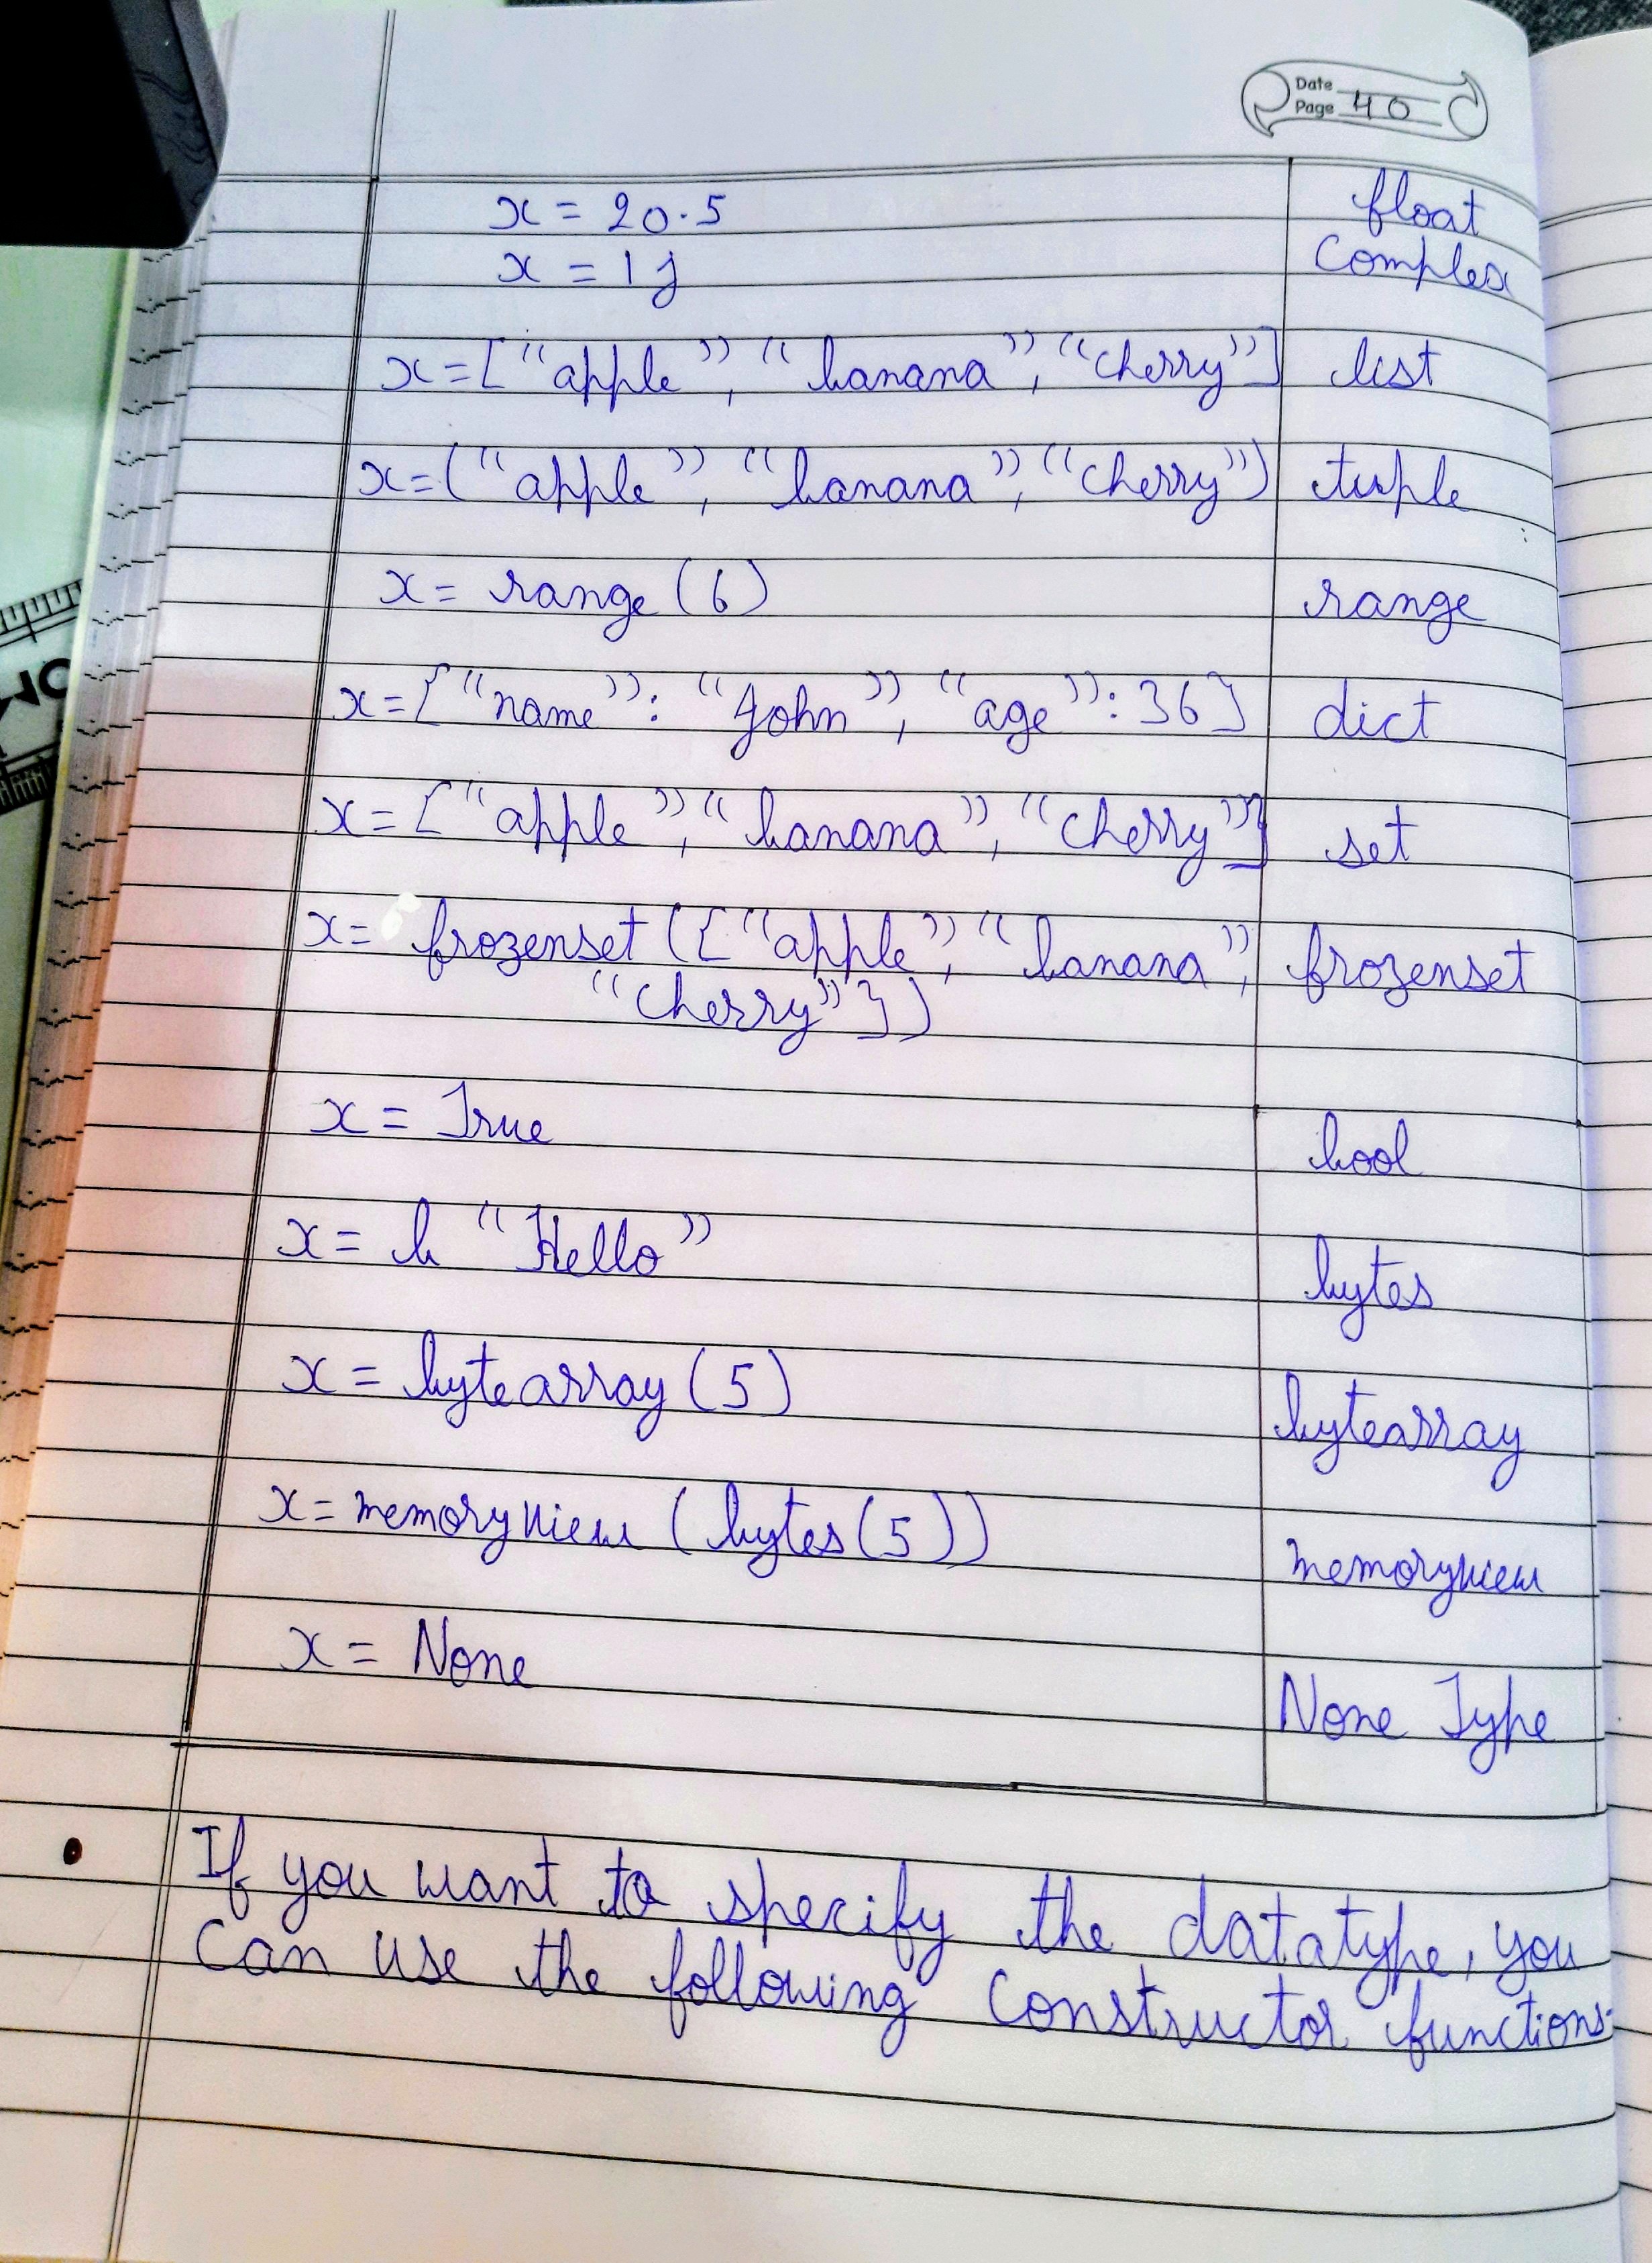 Date
Page 40
x = 20.5 float
x = 1j Complex
x = ["apple", "banana", "cherry"] list
x = ("apple", "banana", "cherry") tuple
x = range (6) range
x = {"name": "John", "age": 36} dict
x = {"apple", "banana", "cherry"} set
x = frozenset ({"apple", "banana", frozenset
"cherry"})
x = True bool
x = b "Hello" bytes
x = bytearray (5) bytearray
x = memoryview (bytes (5)) memoryview
x = None None Type
• If you want to specify the datatype, you
Can use the following Constructor functions: